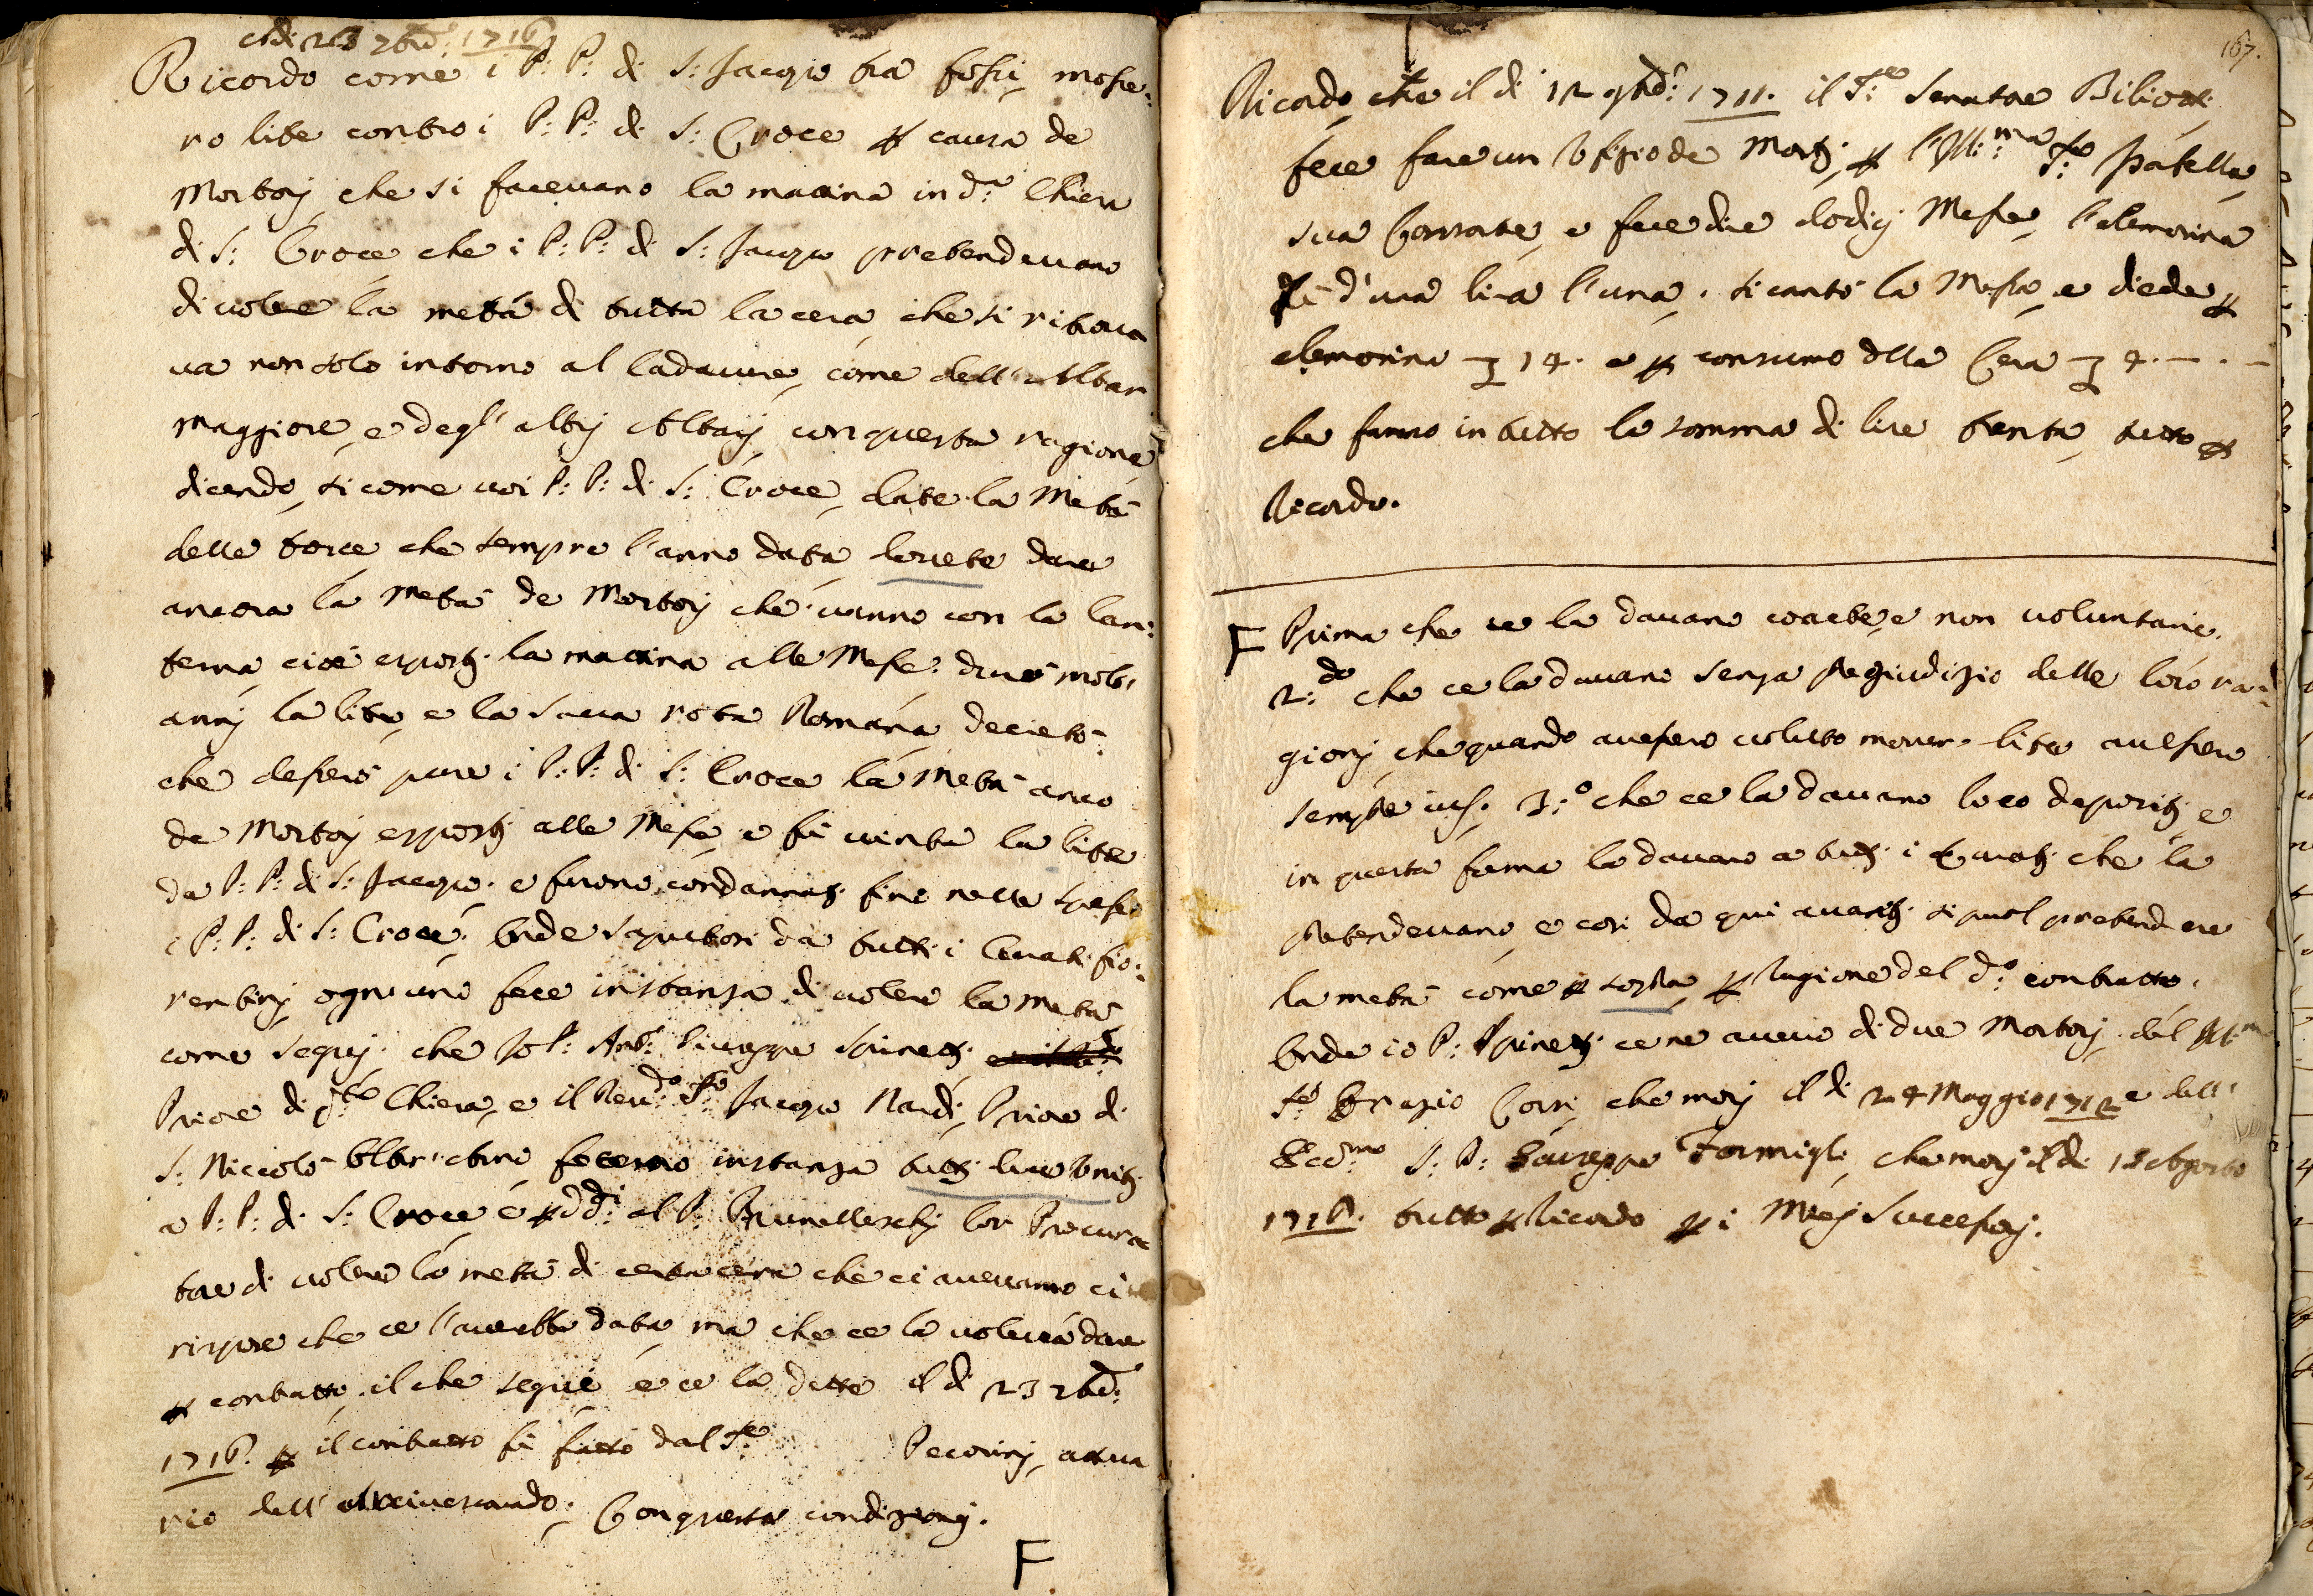 Adi 23 7bre: 1716
Ricordo come i P: P: di S: Jacopo tra fossi, mosse:
ro lite contro i P: P: di S: Croce p causa de
Mortorij che si facevano la mattina in d:a Chiesa
di S: Croce che i P: P: di S: Jacopo pretendevano
di volere la metà di tutta la cera che si ritrova
va non solo intorno al Cadavere, come dell'Altar
maggiore, e degl'altrj Altarj, con questa ragione
dicendo, si come voi P: P: di S: Croce, date la Metà
delle torce che sempre l'anno data, dovete dare
ancora la Metà de Mortorij che vanno con la lan:
terna, cioè esposti la mattina alle Messe: durò molt'
annj la lite, e la Sacra rota Romana, decretò:
che dessero pure i P: P: di S: Croce la Metà anco
de Mortorij esposti alle Messe, e fù vinta la lite
da P: P: di S: Jacopo. e furono condannati fino nelle spese
i P: P: di S: Croce. onde saputosi da tutti i Curati fio:
rentinj ogn'uno fece instanza di volere la metà
come seguj. che Io P: Ant:o Giuseppe Spinetti
Priore di q:ta Chiesa, e il Rev:do S:re Jacopo Nardi, Priore di
S: Niccolò Oltr'Arno fecemo instanza tutti due Uniti
a P: P: di S: Croce e p dd:i al P: Brunelleschj lor Procura
tore di volere la metà di certa cera che ci avevamo ci
rispose che ce l'averebbe data, ma che ce la voleva dare
p contratto, il che seguì e ce la dette il di 23 7bre:
1716. p il contratto fù fatto dal S:re Pecorinj, attua
rio dell'Arcivescovado. Con queste condizionj.
F
167.
Ricordo che il di 12 9bre: 1711. il S:re Senatore Biliotti
fece fare un Ufizio de Morti, p l'Ill:ma S:ra
sua Consorte, e fece dire dodicj Messe, l'elemosina
d'una lira l'una, si cantò la Messa, e diede p
elemosina 14. e p consumo della Cera 4. — . —
che fanno in tutto la somma di lire trenta, tutto p
Ricordo.
F Prima che ce la davano coacte, e non voluntarie.
2:do che ce la davano senza Pregiudizio delle loro ra:
gionj, che quando avessero voluto mover lite avessero
sempre jus. 3:o che ce la davano loco depositi e
in questa forma la davano a tutti i Curati che la
Pretendevano, e così da qui avanti si puol pretendere
la metà come p sopra, p ragione del d:o contratto.
onde io P: Spinetti ce ne avevo di due Mortorij, del
S:re Orazio Corsi, che morj il di 24 Maggio 1712 e dell'
Ecc:mo S: D: Giuseppe Formigli, che morj il di 18 Agosto
1716. tutto p Ricordo p i Miej Successorj.